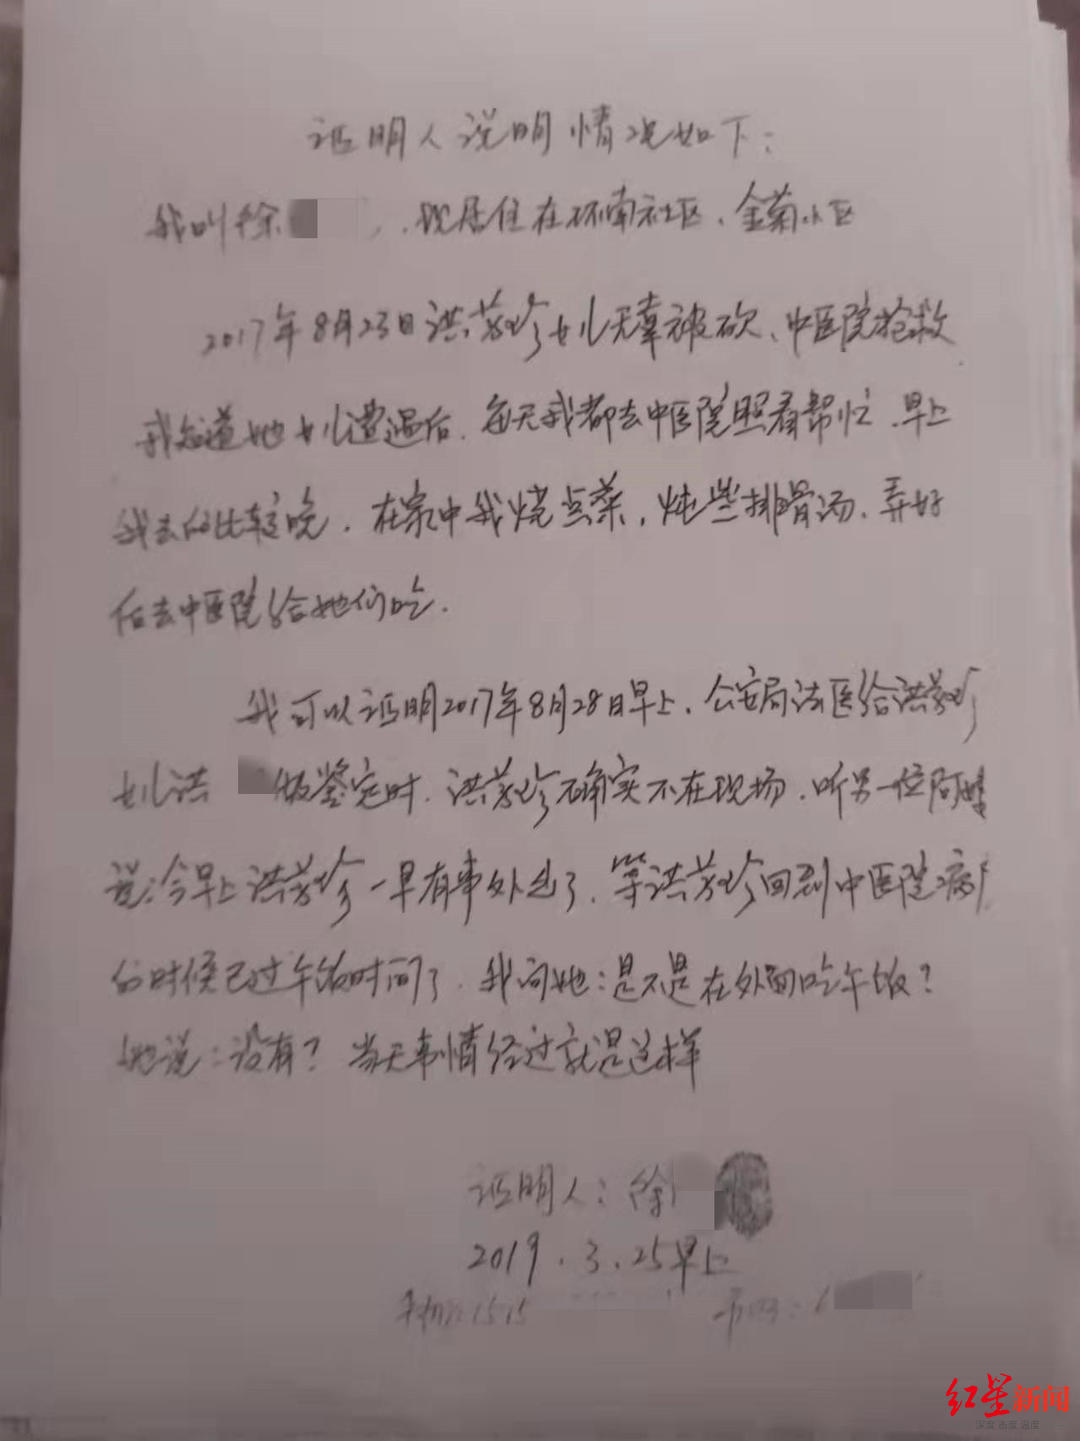 证明人说明情况如下:
我叫徐 , 现居住在环南社区、金菊小区
2017年8月23日洪芬珍女儿无辜被砍、中医院抢救
我知道她女儿遭遇后.每天我都去中医院照看帮忙.早上
我去的比较晚.在家中我烧点菜,炖些排骨汤、弄好
后去中医院给她们吃.
我可以证明2017年8月28日早上.公安局法医给洪芬珍
女儿洪 做鉴定时.洪芬珍确实不在现场.听另一位阿姨
说:今早上洪芬珍一早有事外出了.等洪芬珍回到中医院病房
的时候已过午饭时间了.我问她:是不是在外面吃午饭?
她说:没有?当天事情经过就是这样
证明人:徐
2019.3.25早上
手机:1515
红星新闻
深度 态度 温度